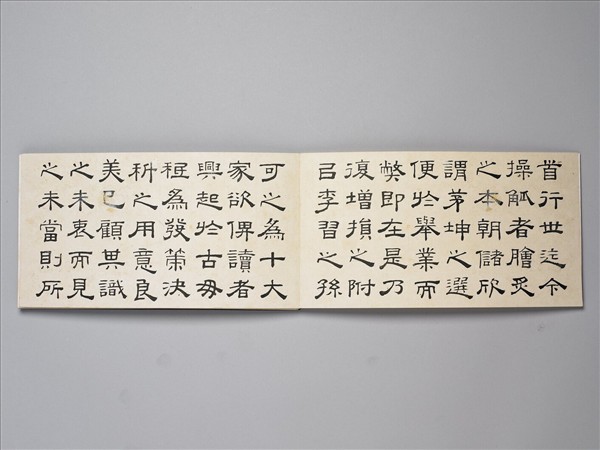 首行世迄今
操觚者膾炙
之本朝儲欣
謂茅坤之選
便於舉業而
弊即在是乃
復增損之附
㠯李習之孫
可之為十大
家欲俾讀者
興起於古毋
秪為發策決
科之用意良
美已顧其識
之未衷而見
之未當則所